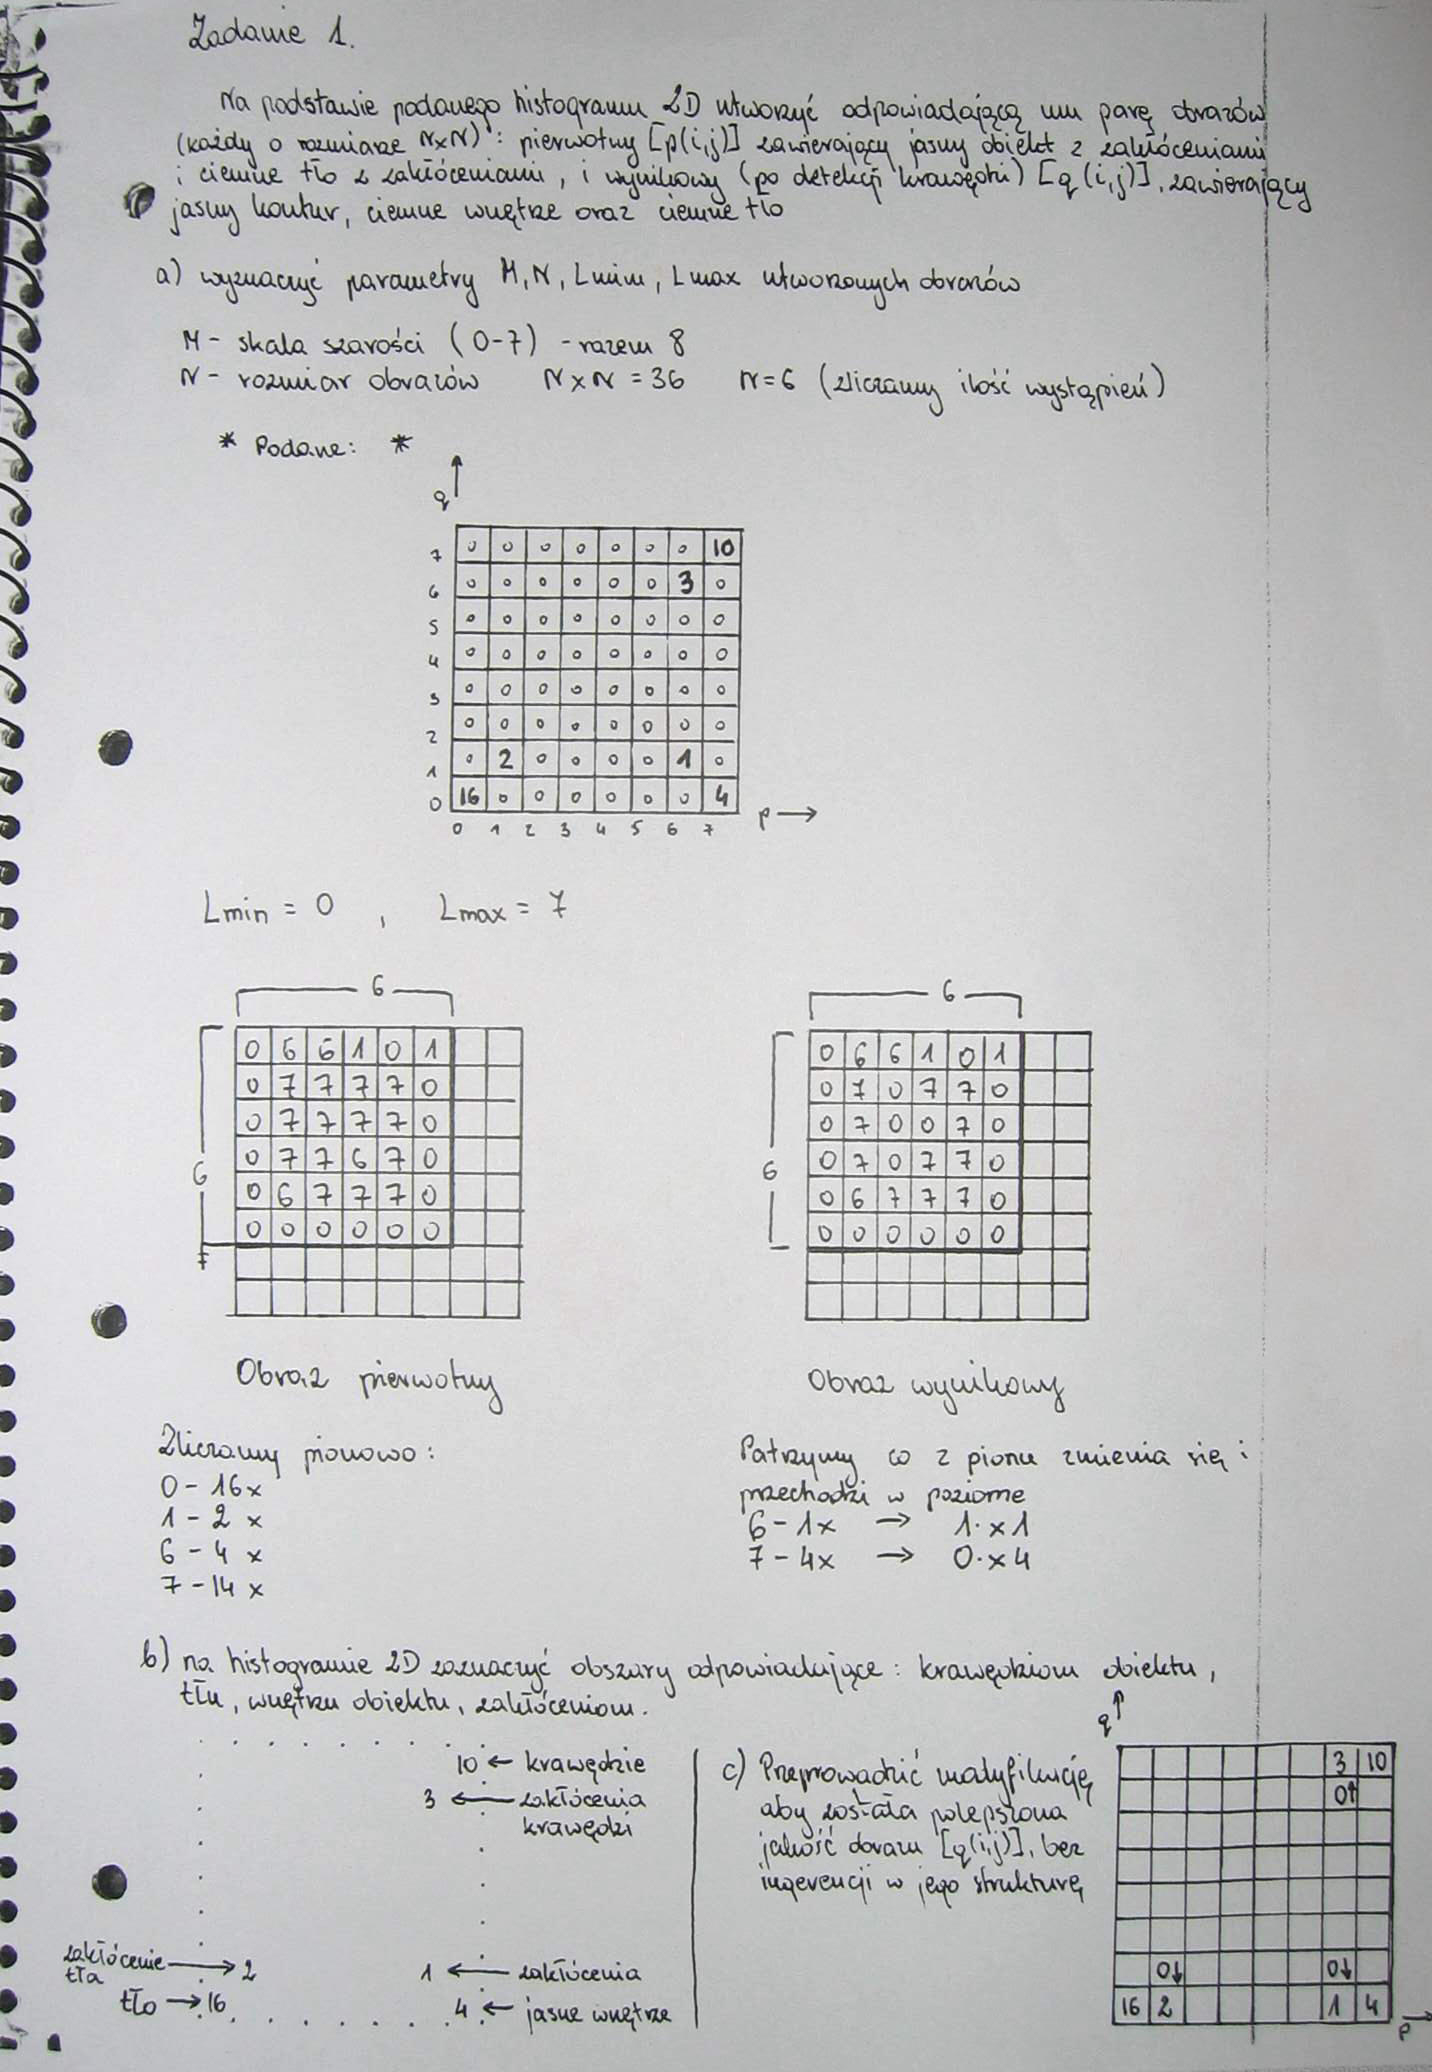 Zadanie 1.
Na podstawie podanego histogramu 2D utworzyć odpowiadającą mu parę obrazów
(każdy o rozmiarze N×N) : pierwotny [p(i,j)] zawierający jasny obiekt z zakłóceniami
i ciemne tło z zakłóceniami, i wynikowy (po detekcji krawędzi) [q(i,j)], zawierający
jasny kontur, ciemne wnętrze oraz ciemne tło
a) wyznaczyć parametry M, N, Lmin, Lmax utworzonych obrazów
M - skala szarości (0-7) - razem 8
N - rozmiar obrazów N×N = 36 N=6 (zliczamy ilość wystąpień)
* Podane: *
q ↑
7 0 0 0 0 0 0 0 10
6 0 0 0 0 0 0 3 0
5 0 0 0 0 0 0 0 0
4 0 0 0 0 0 0 0 0
3 0 0 0 0 0 0 0 0
2 0 0 0 0 0 0 0 0
1 0 2 0 0 0 0 1 0
0 16 0 0 0 0 0 0 4
0 1 2 3 4 5 6 7 p →
Lmin = 0 , Lmax = 7
6
6
0 6 6 1 0 1
0 7 7 7 7 0
0 7 7 7 7 0
0 7 7 6 7 0
0 6 7 7 7 0
0 0 0 0 0 0
Obraz pierwotny
6
6
0 6 6 1 0 1
0 7 0 7 7 0
0 7 0 0 7 0
0 7 0 7 7 0
0 6 7 7 7 0
0 0 0 0 0 0
Obraz wynikowy
Zliczamy pionowo:
0 - 16x
1 - 2 x
6 - 4 x
7 - 14 x
Patrzymy co z pionu zmienia się i
przechodzi w poziome
6 - 1x → 1·x1
7 - 4x → 0·x4
b) na histogramie 2D zaznaczyć obszary odpowiadające : krawędziom obiektu,
tłu, wnętrzu obiektu, zakłóceniom.
10 ← krawędzie
3 ← zakłócenia
krawędzi
zakłócenie → 2
tła
tło → 16
1 ← zakłócenia
4 ← jasne wnętrze
c) Przeprowadzić modyfikację,
aby została polepszona
jakość obrazu [q(i,j)], bez
ingerencji w jego strukturę
q ↑
3 10
0↑
0↓ 0↓
16 2 1 4
p →